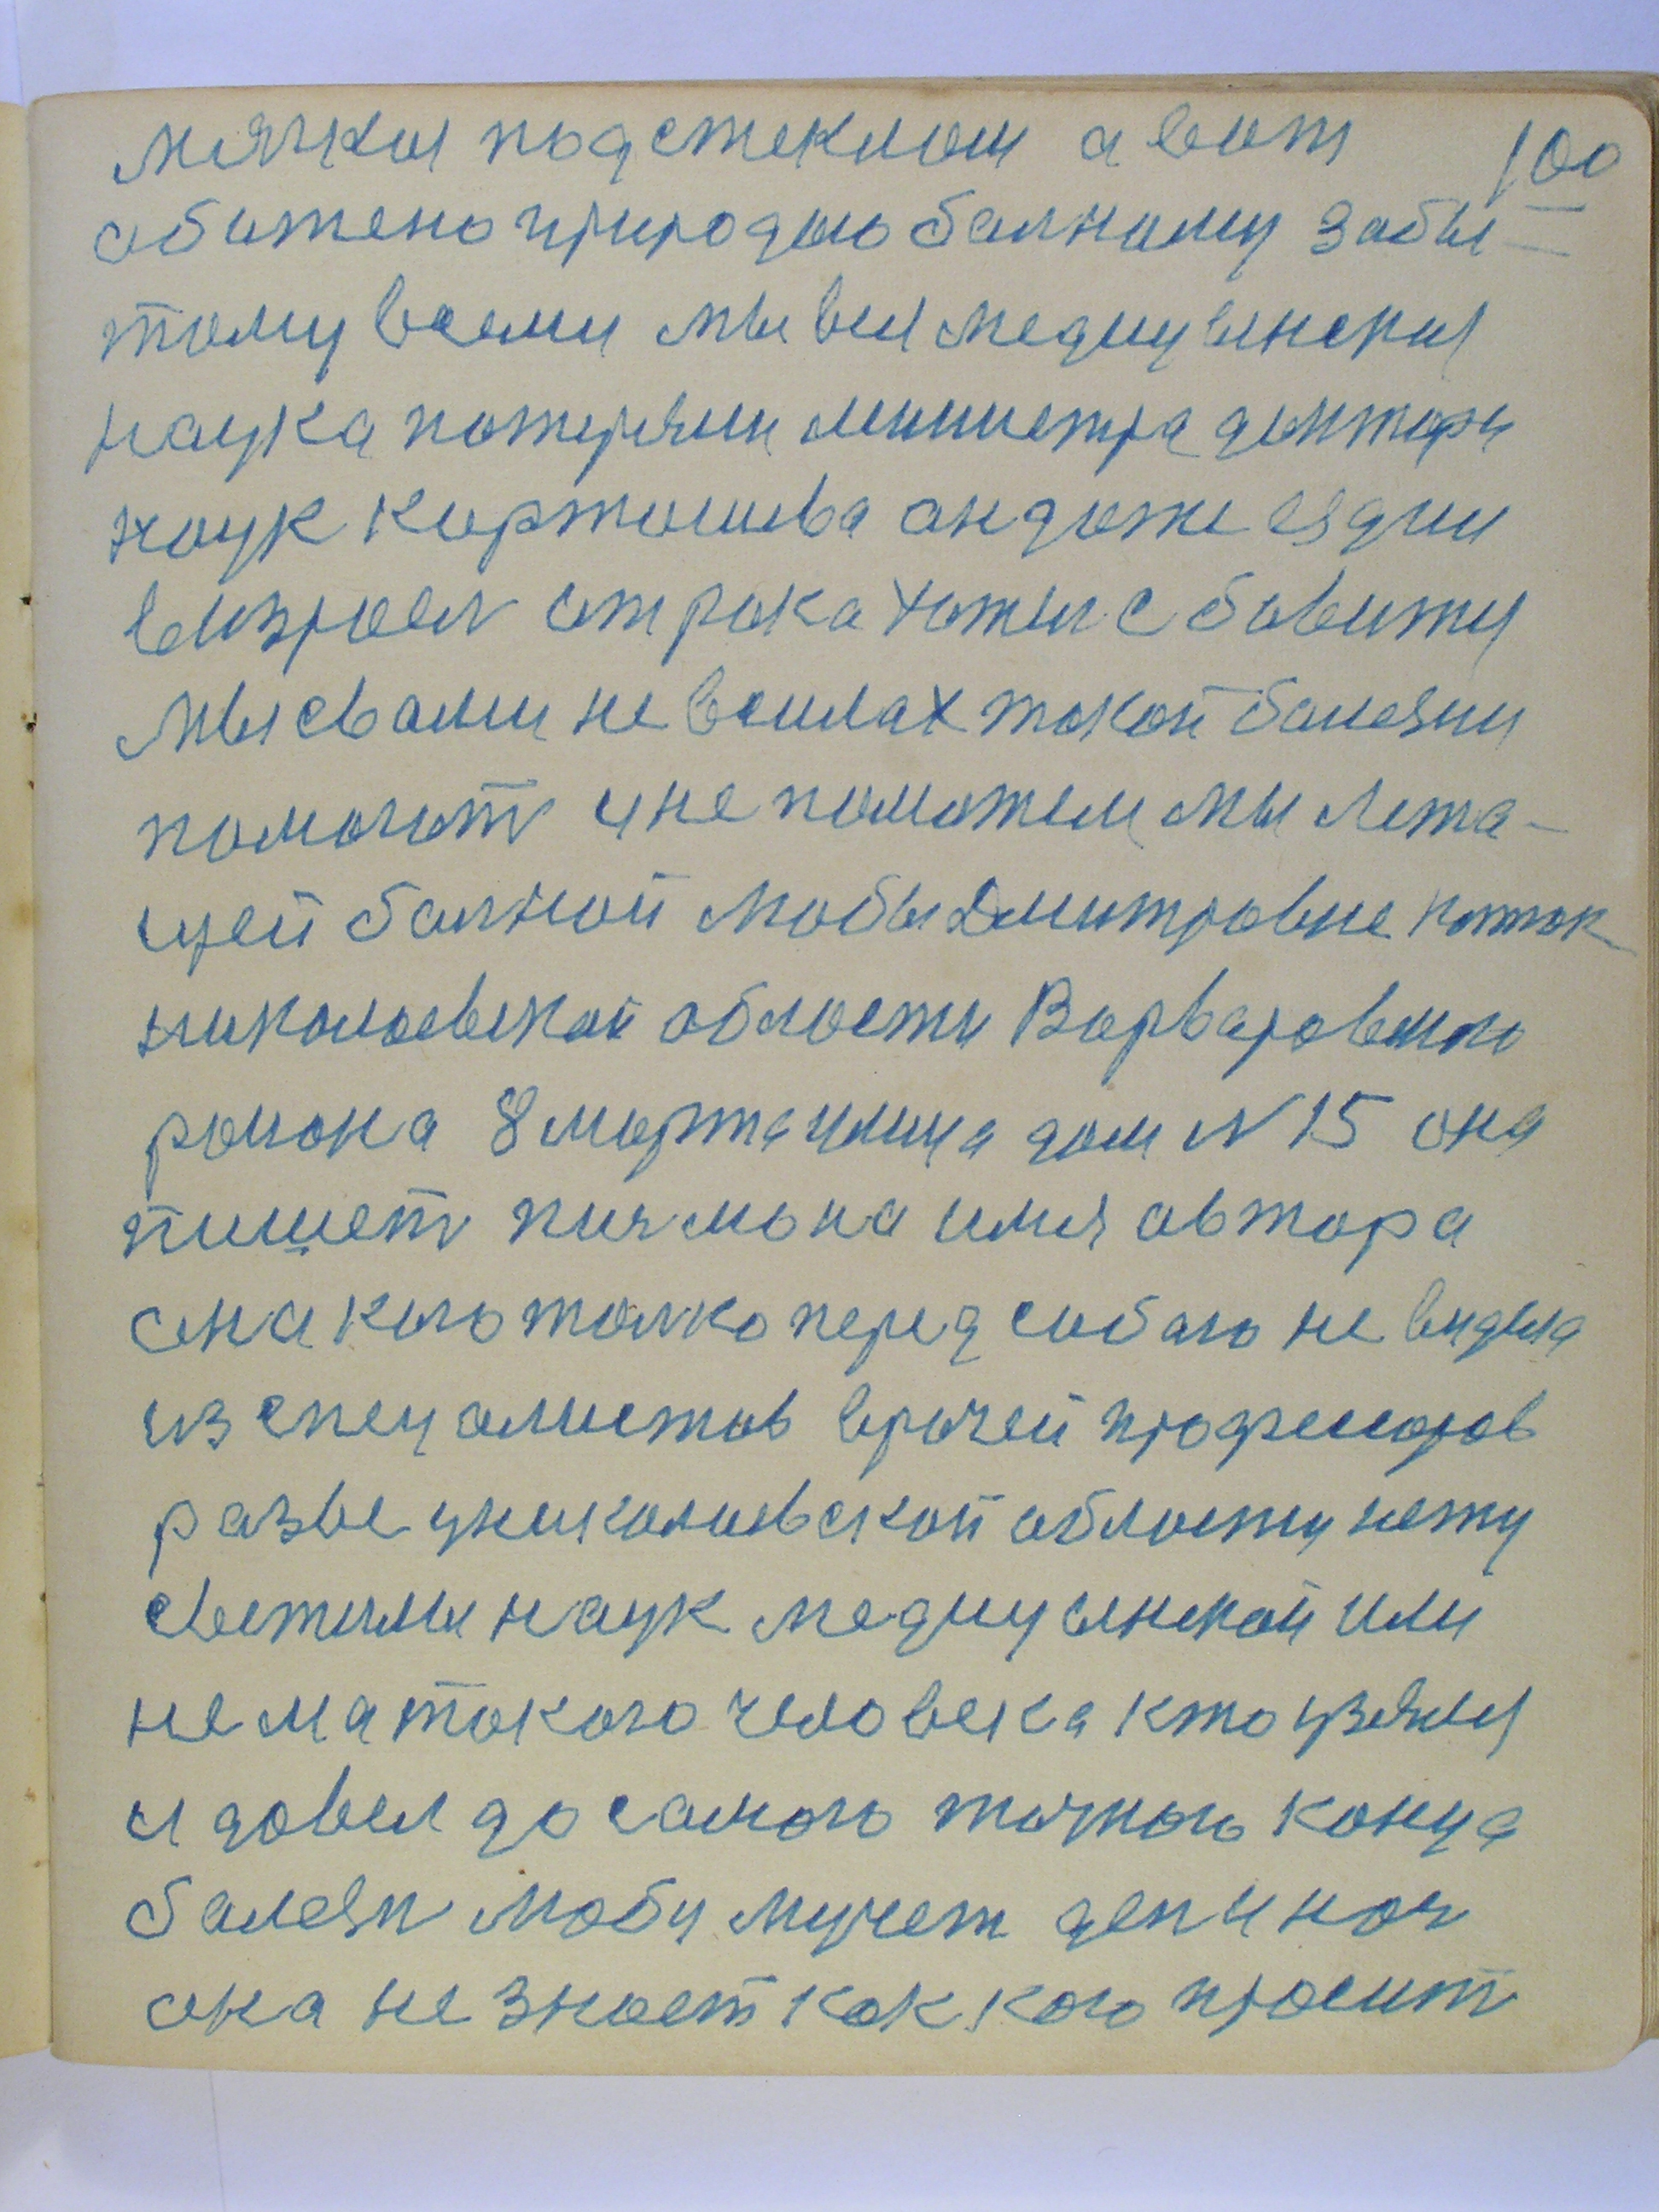 мячки под стеклом а вот 100
обижено природою балному забы-
тому всеми мы вся медицинская
наука потеряли министра доктора
наук он даже ездил
в израел хотел
мы свами не в силах такой балезни
помогат и не поможем мы лежа-
щей балной Любы Дмитровне
николаевскай области Варваровского
района 8 марта улица дом N 15 она
пишет писмо на имя автора
она кого толко перед собою не видела
из специалистов врачей професоров
разве униколаевской области нету
светилы наук медицинской или
нема такого человека кто узялся
и довел до самого точного конца
балезн Любу мучет ден и ноч
она не знает как кого просит